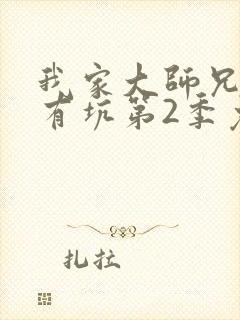 我家大師兄
有坑第2季
扎拉